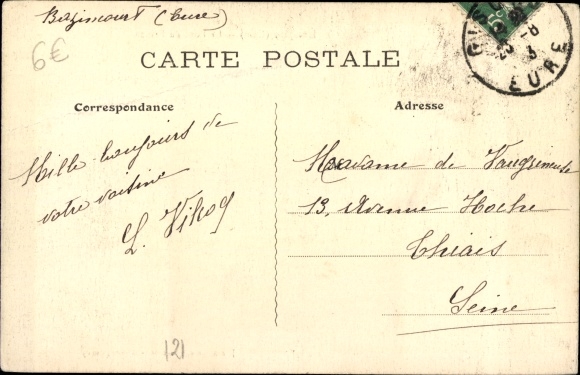 Bazincourt (Eure)
6€
CARTE POSTALE
EURE
Correspondance
Adresse
Mille bonjours de
votre voisine
L.
Madame de
13, Avenue Hoche
Thiais
Seine
121